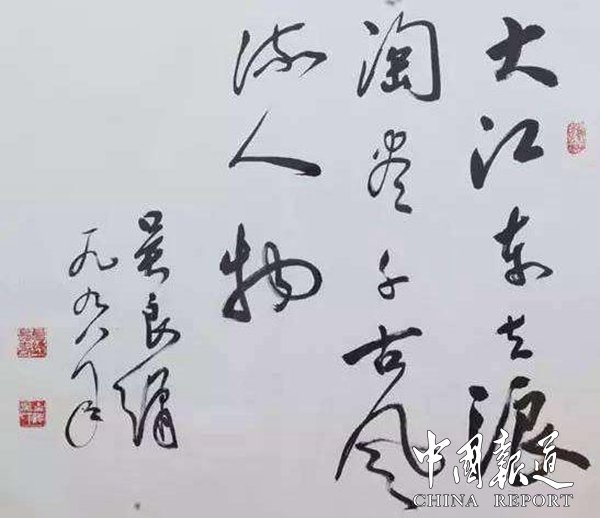 大江东去浪
淘尽千古风
流人物
吴良镛
一九九八年
中国报道
CHINA REPORT